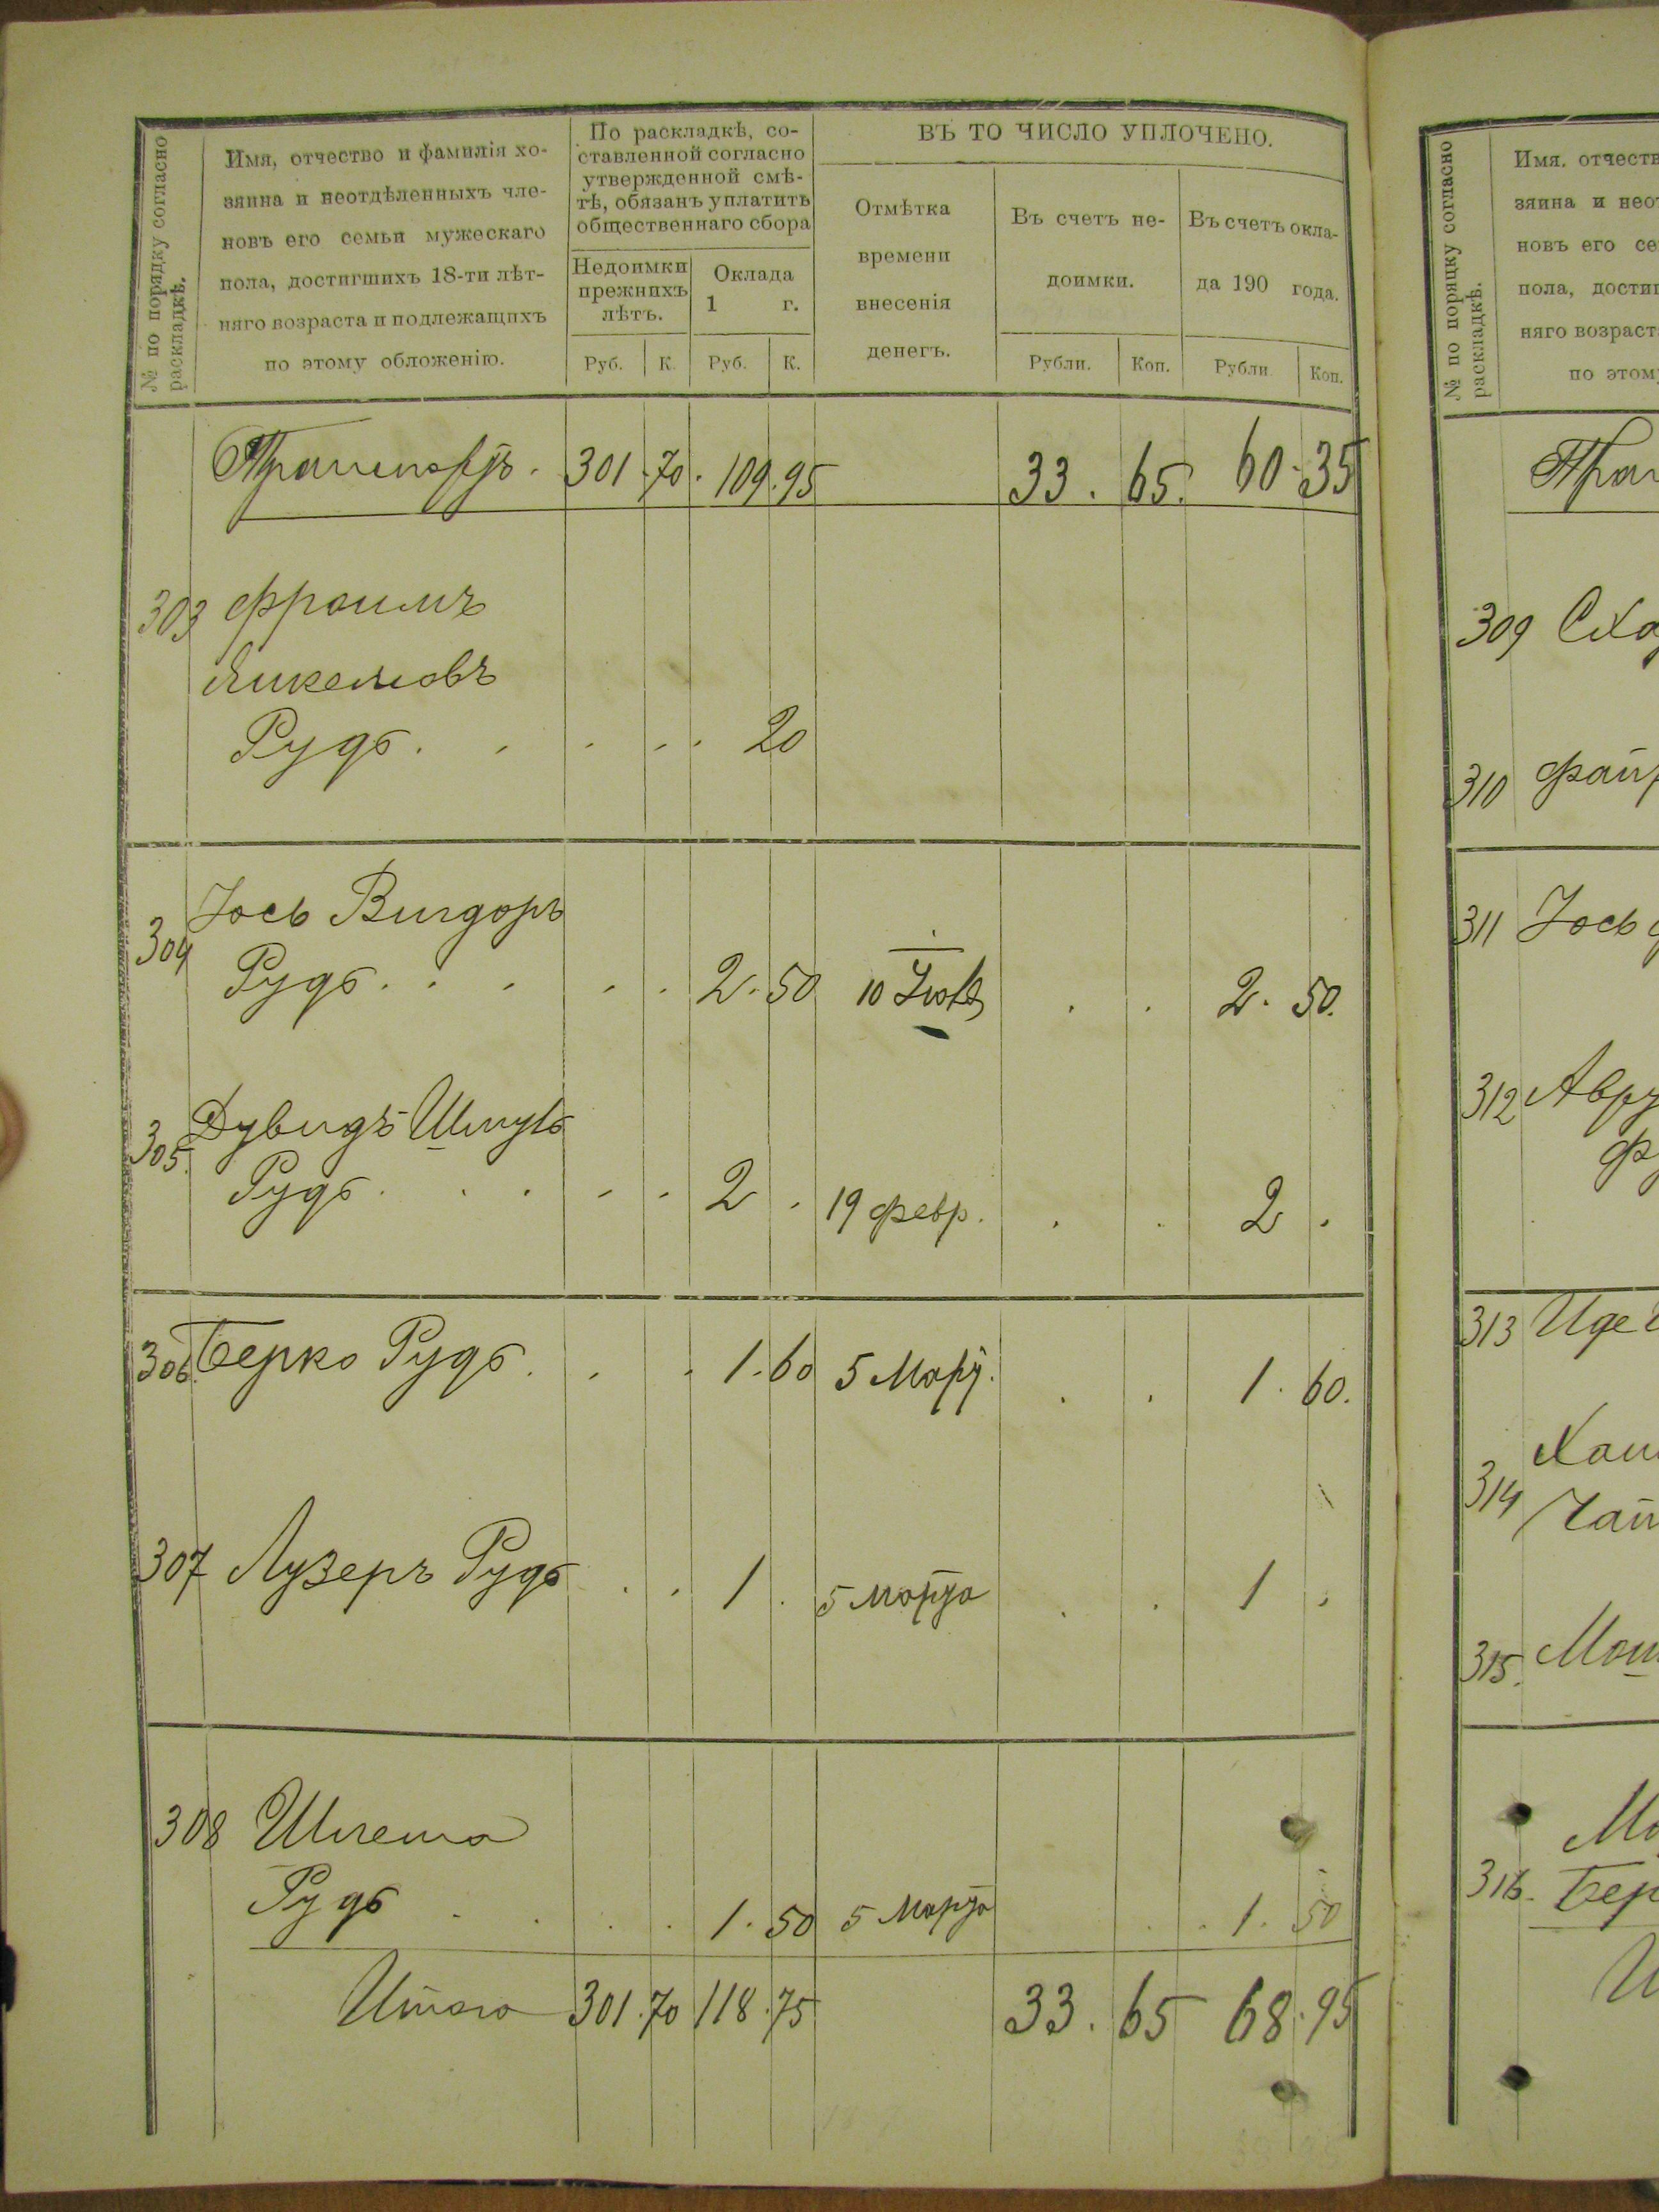 № по порядку согласно
раскладкѣ.
Имя, отчество и фамилія хо-
зяина и неотдѣленныхъ чле-
новъ его семьи мужескаго
пола, достигшихъ 18-ти лѣт-
няго возраста и подлежащихъ
по этому обложенію.
По раскладкѣ, со-
ставленной согласно
утвержденной смѣ-
тѣ, обязанъ уплатить
общественнаго сбора
Недоимки
прежнихъ
лѣтъ.
Оклада
1 г.
Руб. К. Руб. К.
ВЪ ТО ЧИСЛО УПЛОЧЕНО.
Отмѣтка
времени
внесенія
денегъ.
Въ счетъ не-
доимки.
Рубли. Коп.
Въ счетъ окла-
да 190 года.
Рубли Коп.
Транспортъ. 301.70. 109.95 33. 65. 60.35
303 Фроимъ
Янкелювъ
Рудь. 20
304 Іось Вигдоръ
Рудь. 2.50 10 Іюля 2. 50.
305. Дувидъ-Шмуль
Рудь. 2. 19 февр. 2.
306. Берко Рудь. 1.60 5 Март. 1. 60.
307 Лузеръ Рудь 1. 5 марта 1.
308 Шлема
Рудь 1.50 5 Марта 1. 50
Итого 301.70 118.75 33.65 68.95
№ по порядку согласно
раскладкѣ.
Имя, отчеств
зяина и неот
новъ его се
пола, достиг
няго возраст
по этому
Тран
309 Сха
310 Файт
311 Іось
312 Авру
313 Иде
314 Хаи
315. Мош
316. Бер